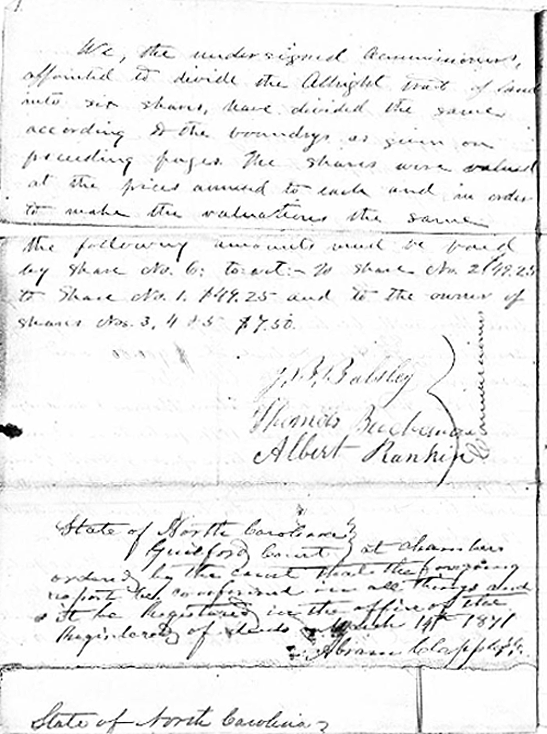 We, the undersigned Commissioners,
appointed to divide the Albright tract of land
into six shares, have divided the same
according to the boundrys as given on
preceeding pages. The shares were valued
at the prices annexed to each and in order
to make the valuations the same
the following amounts must be paid
by share No. 6: to wit:- To share No. 2 $49.25
to share No. 1. $49.25 and to the owner of
shares Nos. 3, 4 & 5 $7.50.
Balsley
Thomas
Albert Rankin
Commissioners
State of North Carolina
Guilford Court at Chambers
ordered by the court that the foregoing
report be confirmed in all things and
it be Registered in the office of the
Register of deeds March 14th 1871
Abram Clapp
State of North Carolina